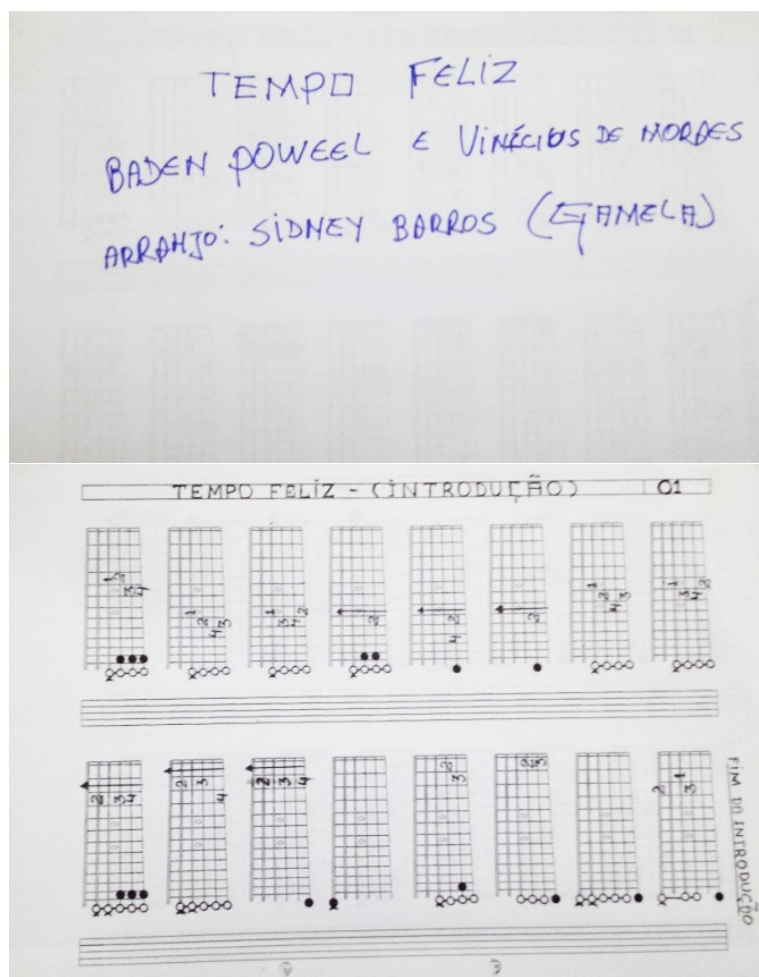 TEMPO FELIZ
BADEN POWEEL E VINÍCIOS DE MORAES
ARRANJO: SIDNEY BARROS (GAMELA)
TEMPO FELIZ - (INTRODUÇÃO) 01
FIM DA INTRODUÇÃO